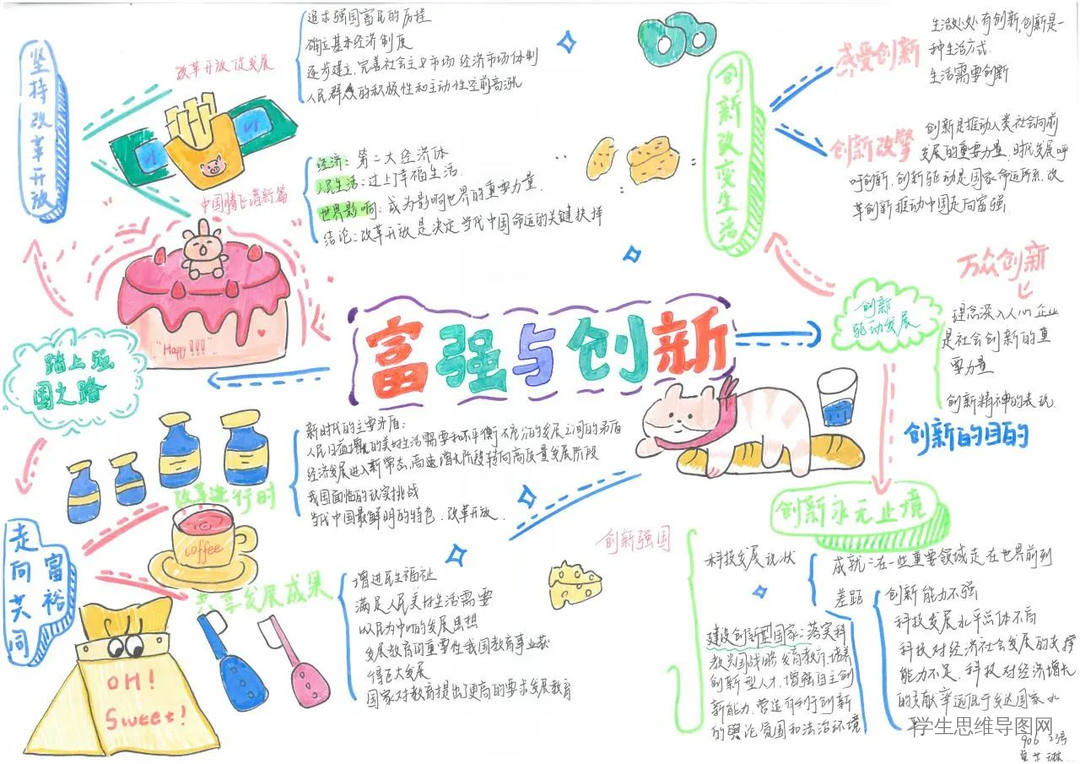 富强与创新
踏上强
国之路
坚持改革开放
改革开放促发展
追求强国富民的历程
确立基本经济制度
逐步建立、完善社会主义市场经济市场体制
人民群众的积极性和主动性空前高涨
中国腾飞谱新篇
经济：第二大经济体
人民生活：过上了幸福生活.
世界影响：成为影响世界的重要力量.
结论：改革开放是决定当代中国命运的关键抉择
Happy!!!!
走向共同
富裕
改革进行时
新时代的主要矛盾：
人民日益增长的美好生活需要和不平衡不充分的发展之间的矛盾
经济发展进入新常态,高速增长阶段转向高质量发展阶段
我国面临的现实挑战
当代中国最鲜明的特色：改革开放.
coffee
共享发展成果
增进民生福祉
满足人民美好生活需要
以民为中心的发展思想
发展教育的重要性我国教育事业获
得巨大发展
国家对教育提出了更高的要求发展教育
OH!
Sweet!
创新
驱动发展
创新改变生活
感受创新
生活处处有创新,创新是一
种生活方式.
生活需要创新
创新改擎
创新是推动人类社会向前
发展的重要力量.时代发展呼
呼创新,创新驱动是国家命运所系.改
革创新推动中国走向富强
万众创新
理念深入人心 企业
是社会创新的重
要力量
创新精神的表现
创新的目的
创新永无止境
创新强国
科技发展现状
成就：在一些重要领域走在世界前列
差距
创新能力不强
科技发展水平总体不高
科技对经济社会发展的支撑
能力不足.科技对经济增长
的贡献率远低于发达国家水
平
建设创新型国家：落实科
教兴国战略 发育教育、培养
创新型人才,增强自主创
新能力.营造有利于创新
的舆论氛围和法治环境
学生思维导图网
906 33号